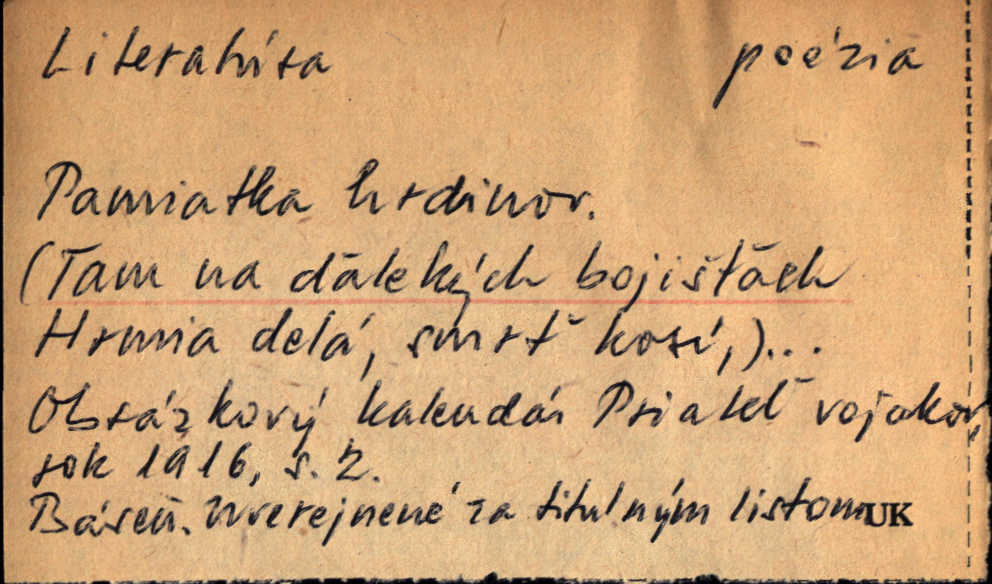 Literatúra poézia
Pamiatka hrdinov.
(Tam na ďalekých bojištäch
Hrmia delá, smrť kosí,)...
Obrázkový kalendár Priateľ vojakov,
rok 1916, s. 2.
Báseň. Uverejnené za titulným listom UK